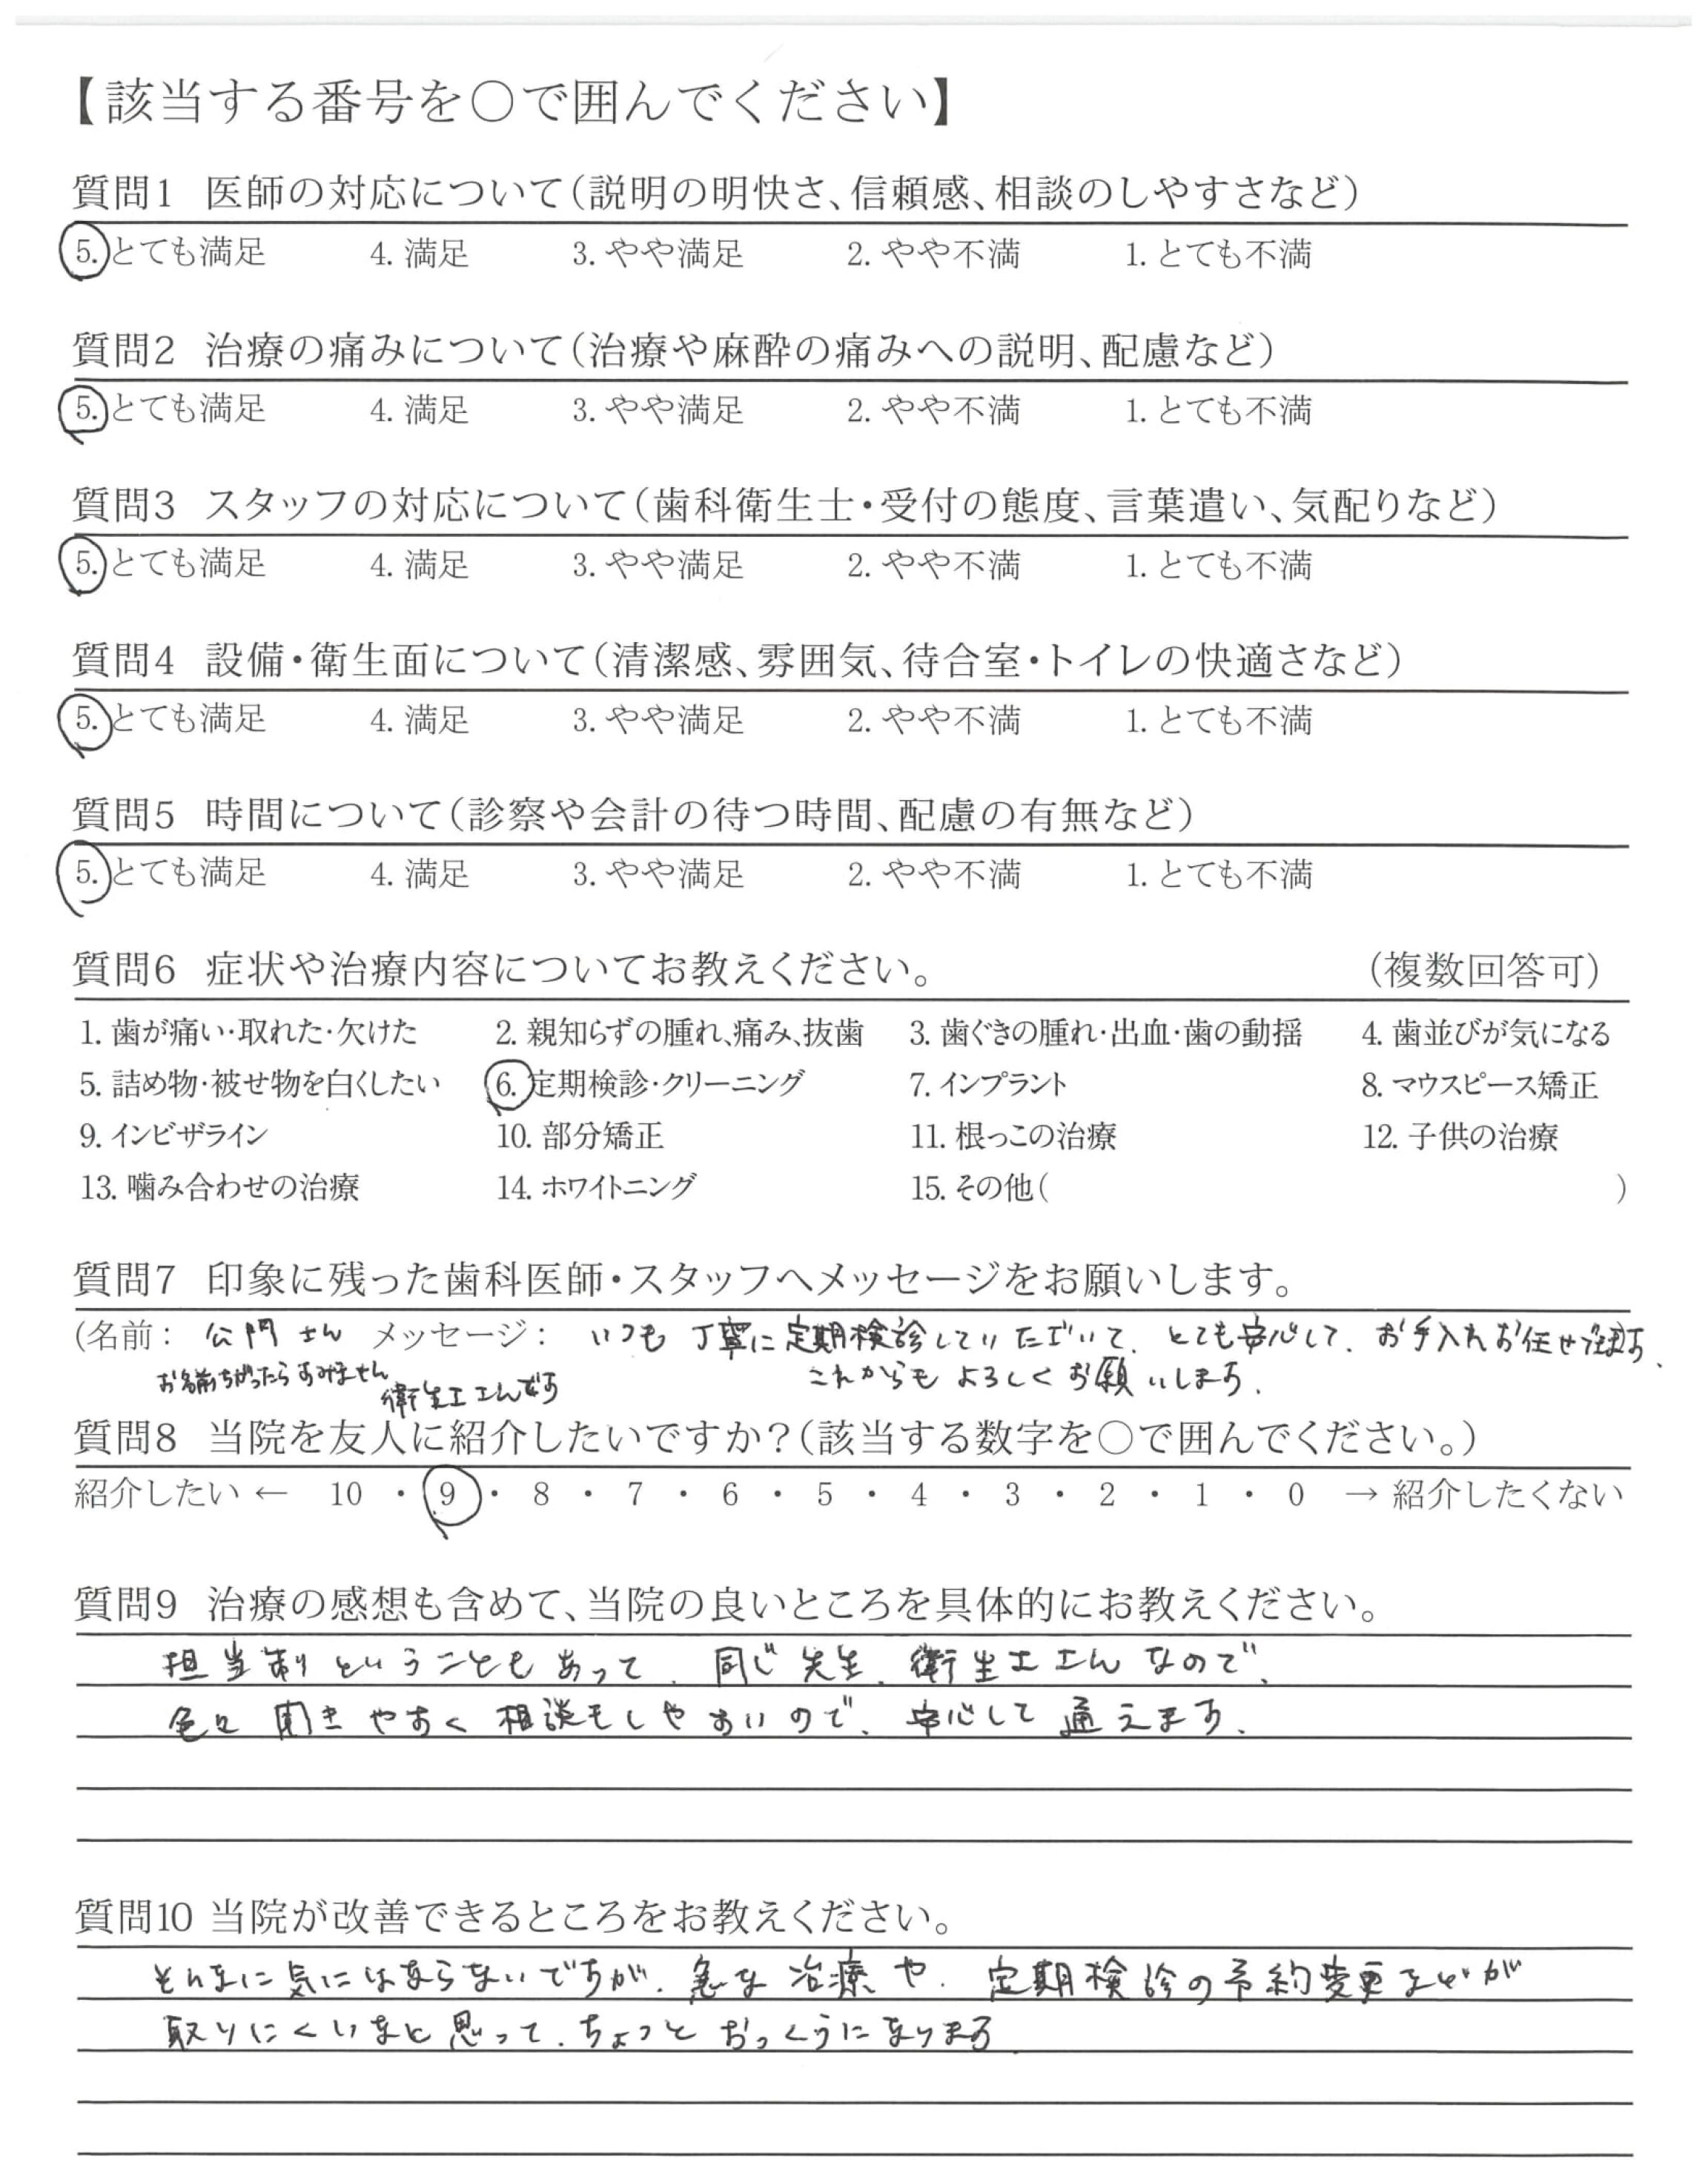 【該当する番号を〇で囲んでください】
質問1 医師の対応について(説明の明快さ、信頼感、相談のしやすさなど)
5. とても満足 4. 満足 3. やや満足 2. やや不満 1. とても不満
質問2 治療の痛みについて(治療や麻酔の痛みへの説明、配慮など)
5. とても満足 4. 満足 3. やや満足 2. やや不満 1. とても不満
質問3 スタッフの対応について(歯科衛生士・受付の態度、言葉遣い、気配りなど)
5. とても満足 4. 満足 3. やや満足 2. やや不満 1. とても不満
質問4 設備・衛生面について(清潔感、雰囲気、待合室・トイレの快適さなど)
5. とても満足 4. 満足 3. やや満足 2. やや不満 1. とても不満
質問5 時間について(診察や会計の待つ時間、配慮の有無など)
5. とても満足 4. 満足 3. やや満足 2. やや不満 1. とても不満
質問6 症状や治療内容についてお教えください。 (複数回答可)
1. 歯が痛い・取れた・欠けた 2. 親知らずの腫れ、痛み、抜歯 3. 歯ぐきの腫れ・出血・歯の動揺 4. 歯並びが気になる
5. 詰め物・被せ物を白くしたい 6. 定期検診・クリーニング 7. インプラント 8. マウスピース矯正
9. インビザライン 10. 部分矯正 11. 根っこの治療 12. 子供の治療
13. 噛み合わせの治療 14. ホワイトニング 15. その他( )
質問7 印象に残った歯科医師・スタッフへメッセージをお願いします。
(名前： 公門さん メッセージ： いつも丁寧に定期検診していただいて、とても安心して、お手入れお任せ
お名前ちがったらすみません これからもよろしくお願いします。
衛生士さんです
質問8 当院を友人に紹介したいですか？(該当する数字を〇で囲んでください。)
紹介したい ← 10 ・ 9 ・ 8 ・ 7 ・ 6 ・ 5 ・ 4 ・ 3 ・ 2 ・ 1 ・ 0 → 紹介したくない
質問9 治療の感想も含めて、当院の良いところを具体的にお教えください。
担当制ということもあって、同じ先生、衛生士さんなので、
色々聞きやすく相談もしやすいので、安心して通えます。
質問10 当院が改善できるところをお教えください。
そんなに気にはならないですが、急な治療や、定期検診の予約変更などが
取りにくいなと思って、ちょっとおっくうになります